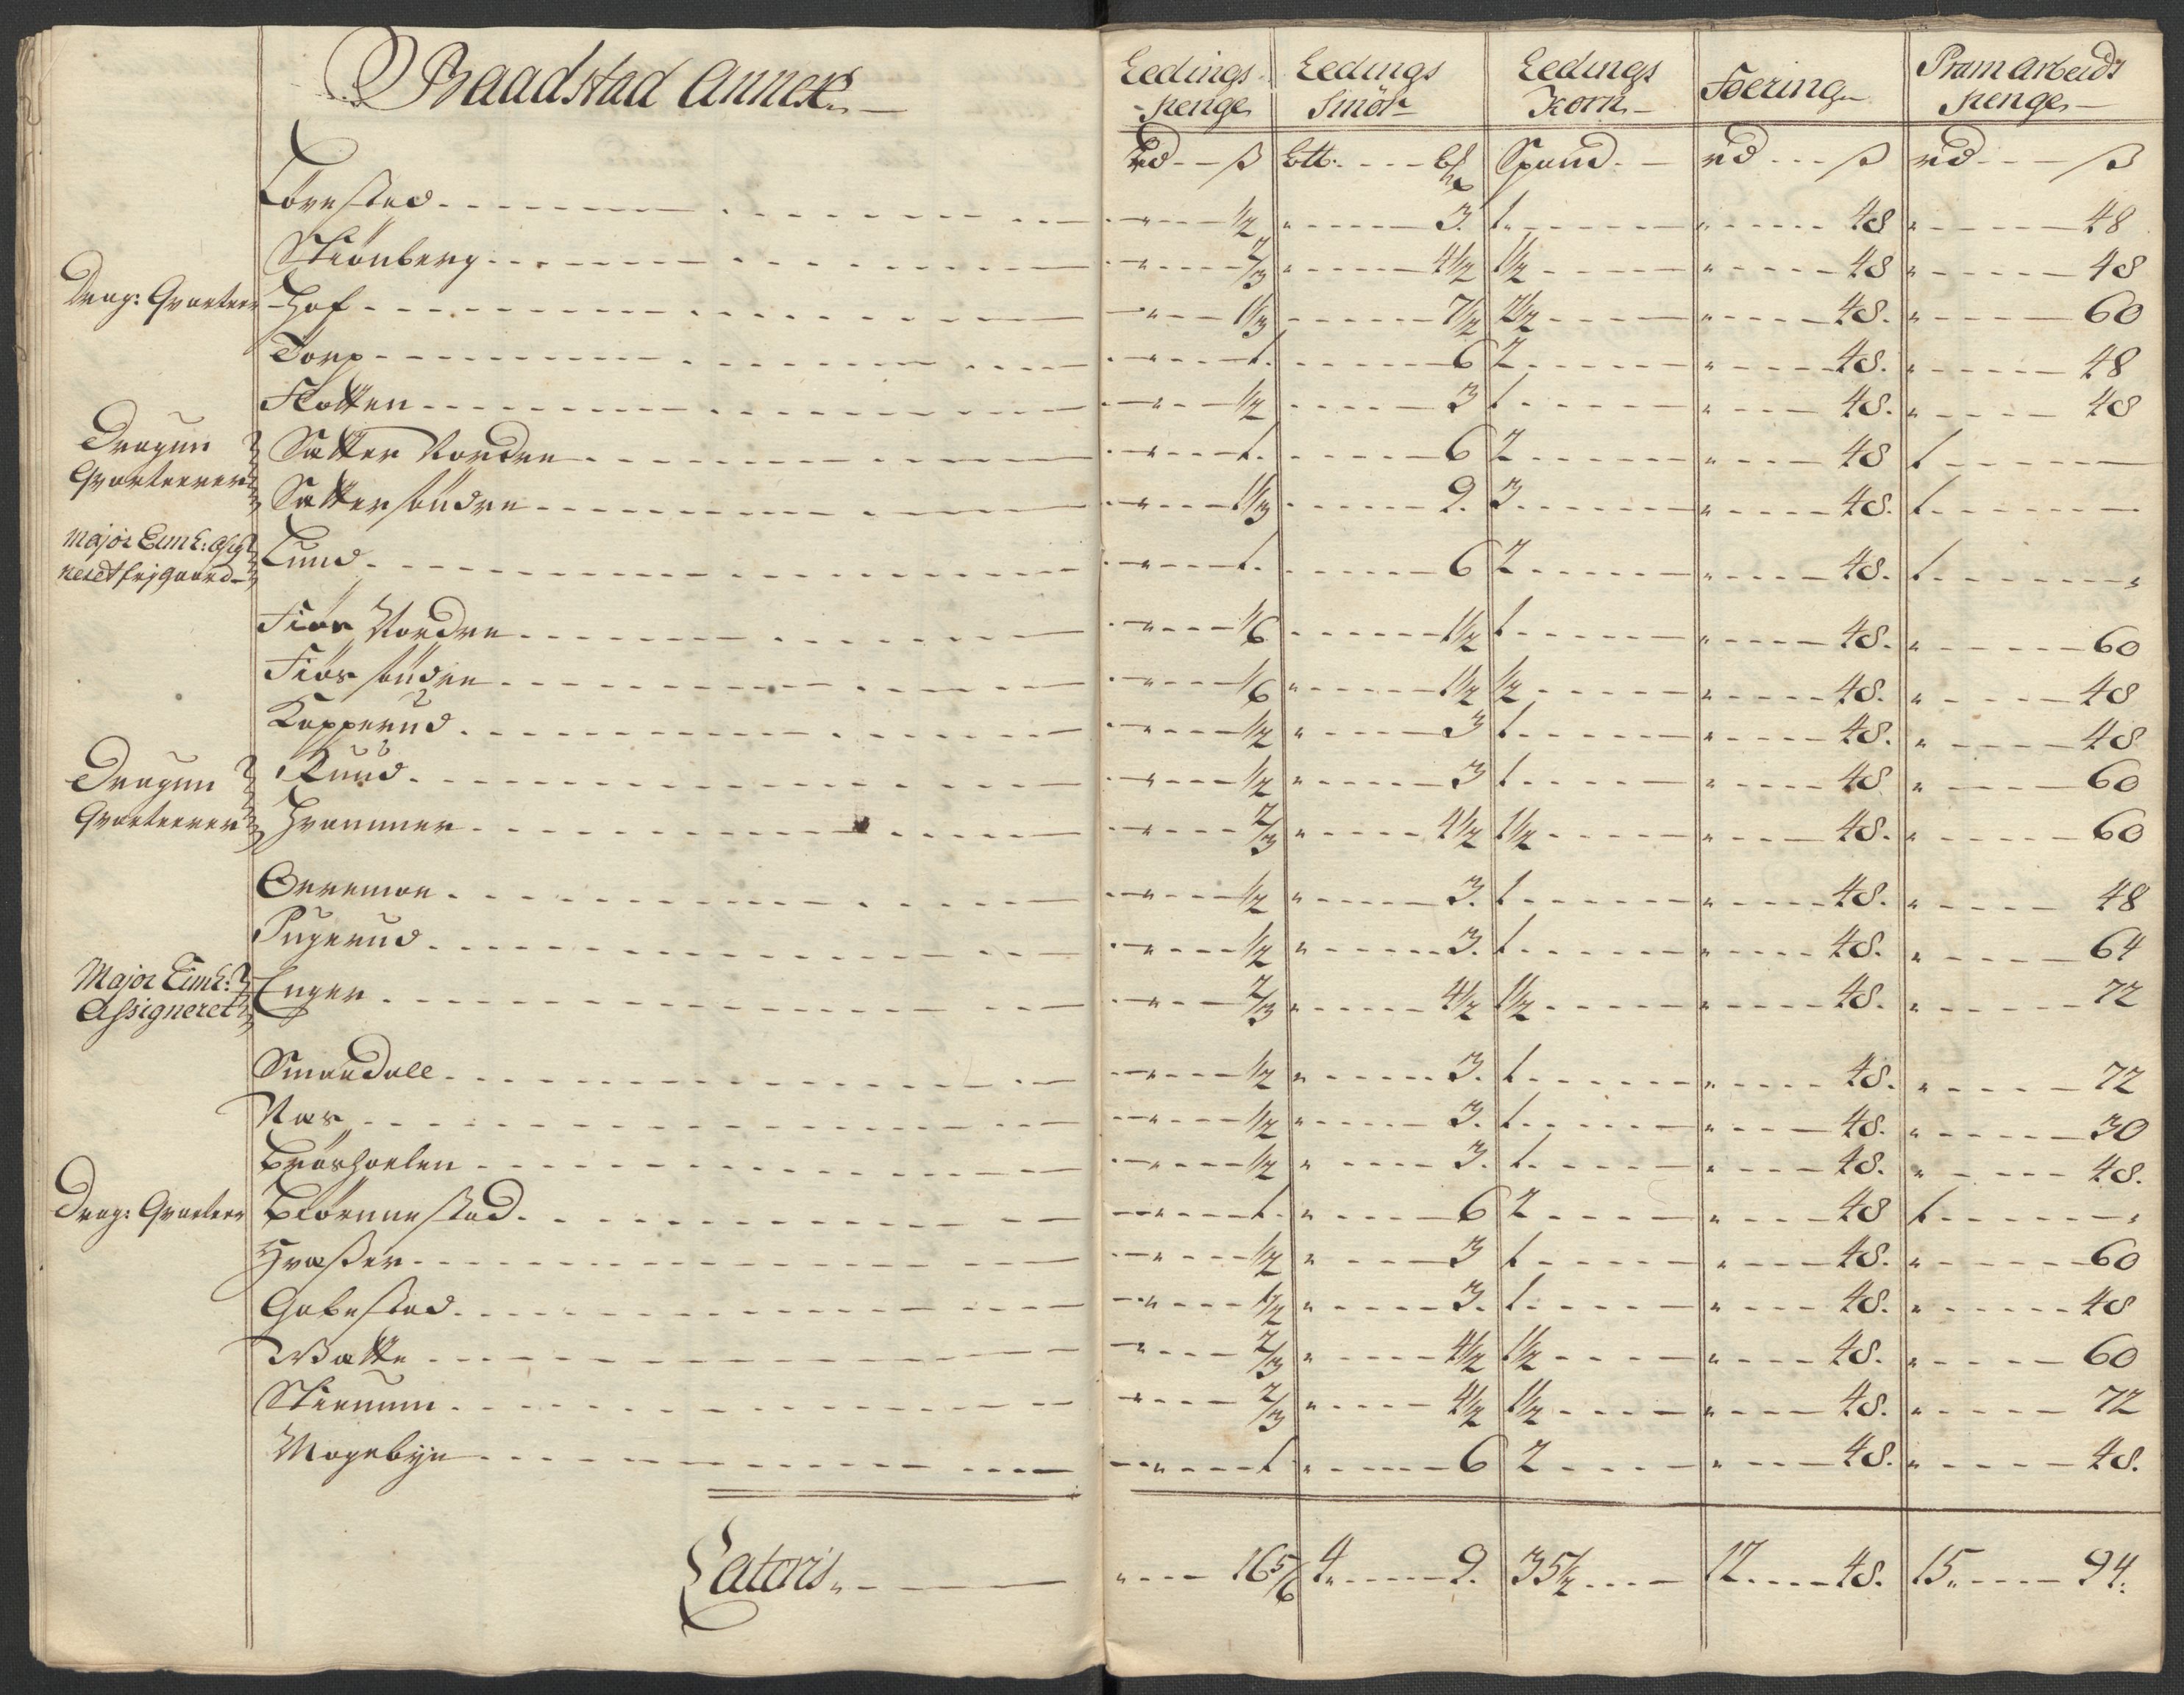 Baadstad Annex
Ledings penge | Ledings Smör | Ledings Korn | Foering | Pram Arbeids penge
rd ß | Ltt: | Spand | rd ß | rd ß
Lörestad " 1/2 | " 3. | 1. | " 48 | " 48
Skiönberg " 2/3 | " 4 1/2 | 1/2 | " 48 | " 48
Drag: Qvarteer Hof " 1 1/3 | 7 1/2 | 2 1/2 | " 48. | " 60
Torp " 1. | 6 | 2 | " 48. | " 48
Flotten " 1/2 | 3 | 1 | " 48. | " 48
Dragun Sætter Nordre " 1. | 6 | 2 | " 48 | 1
Qvarteerer Sætter söndre " 1 1/3 | 9. | 3 | " 48. | 1
Major Eimh: Assig
neret frj gaard Lund " 1. | 6 | 2 | " 48. | 1 "
Fiös Nordre " 1/6 | 1 1/2 | 1 | " 48. | " 60
Fiös söndre " 1/6 | " 1 1/2 | 1/2 | " 48. | " 48
Kopperud " 1/2 | " 3 | 1 | " 48. | " 48
Dragun Ruud " 1/2 | " 3 | 1 | " 48 | " 60
Qvarteerer Hvammer " 2/3 | " 4 1/2 | 1 1/2 | " 48. | " 60
Orremoe " 1/2 | " 3. | 1 | " 48. | " 48
Pugerud " 1/2 | " 3. | 1 | " 48. | " 64
Major Eimh:
Assigneret Enger " 2/3 | " 4 1/2 | 1 1/2 | " 48. | " 72
Smaadall " 1/2 | " 3. | 1 | " 48. | " 72
Næs " 1/2 | " 3. | 1 | " 48. | " 30
Bröshoelen " 1/2 | " 3. | 1 | " 48. | " 48.
Drag: Qvarteer Biörnnestad " 1. | " 6 | 2 | " 48 | 1 "
Hvaßer " 1/2 | " 3 | 1 | " 48. | " 60
Gabestad " 1/2 | " 3. | 1 | " 48. | " 48
Wætte " 2/3 | " 4 1/2 | 1 1/2 | " 48. | " 60
Skienum " 2/3 | " 4 1/2 | 1 1/2 | " 48. | " 72
Mogebye " 1 | " 6 | 2 | " 48. | " 48.
Lateris " 16 5/6 | 4 " 9. | 35 1/2 | 12 48. | 15 " 94.